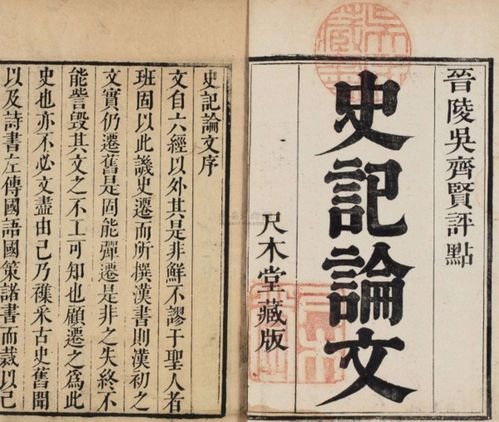 晉陵吳齊賢評點
史記論文
尺木堂藏版
史記論文序
文自六經以外其是非鮮不謬于聖人者
班固以此譏史遷而所撰漢書則漢初之
文實仍遷舊是固能彈遷是非之失終不
能訾毀其文之不工可知也顧遷之為此
史也亦不必文盡由己乃襍采古史舊聞
以及詩書左傳國語國策諸書而裁以己